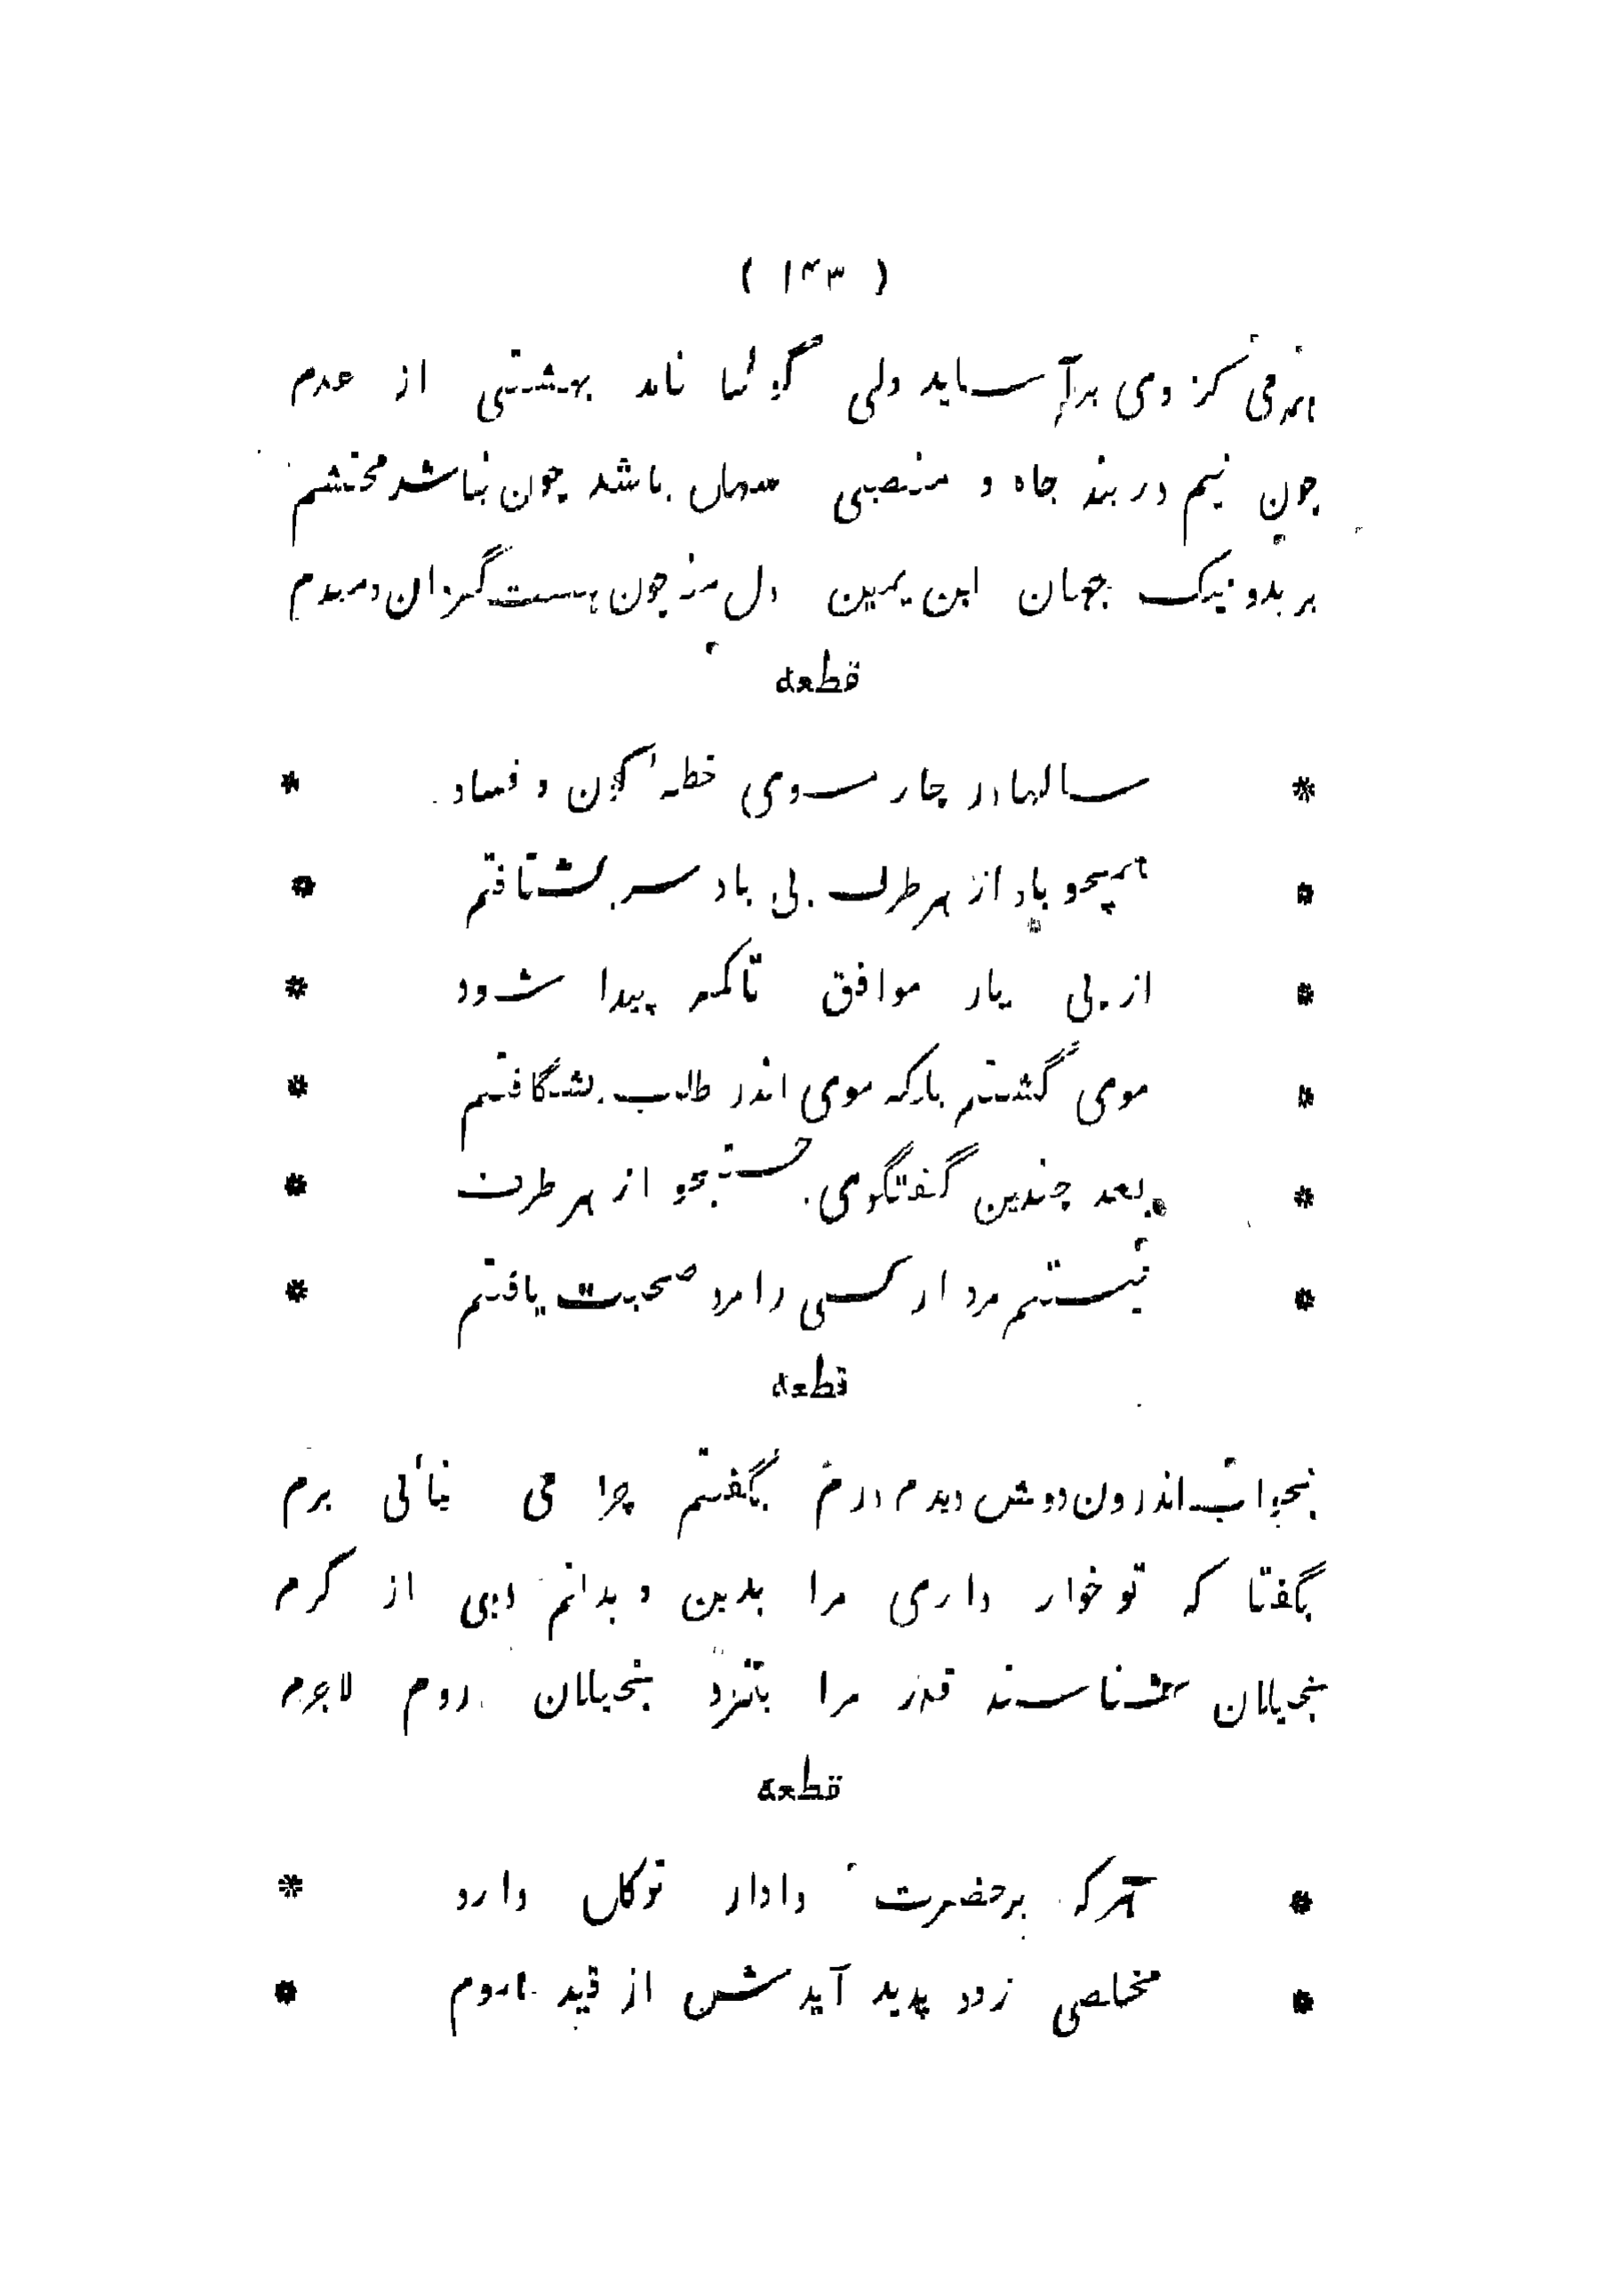 ( ۱۴۳ )
کز وی برآساید ولی گو بیا ناید بهشتی از عدم
چون نیم در بند جاه و منصبی سهل باشد چون نباشد محتشم
بر بد و نیک جهان ابن یمین دل منه چون هست گردان دمبدم
قطعه
* سالها در چار سوی خطهٔ کون و فساد *
* همچو باد از هر طرف بی باد سر بشتافتم *
* از پی یار موافق تا که پیدا شود *
* موی گشتم بارکه موی اندر طلب بشگافتم *
* بعد چندین گفتگوی جستجو از هر طرف *
* نیستم مرد ار کسی را مرد صحبت یافتم *
قطعه
بخواب اندرون دوش دیدم درم بگفتم چرا می نیائی برم
بگفتا که تو خوار داری مرا بدین و بدانم دهی از کرم
بخیلان شناسند قدر مرا بنزد بخیلان روم لاجرم
قطعه
* هر که بر حضرت دادار توکل دارد *
* مخلصی زود پدید آیدش از قید *